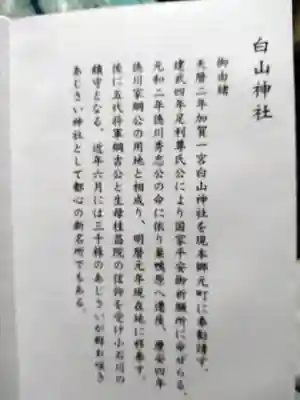 白山神社
御由緒
天暦二年加賀一宮白山神社を現本郷元町に奉勧請す。
建武四年足利尊氏公により国家平安御祈願所に命ぜらる。
元和二年徳川秀忠公の命に依り巣鴨原へ遷座、慶安四年
徳川家綱公の用地と相成り、明暦元年現在地に移奉す。
後に五代将軍綱吉公と生母桂昌院の信仰を受け小石川の
鎮守となる。近年六月には三千株のあじさいが咲き
あじさい神社として都心の新名所でもある。